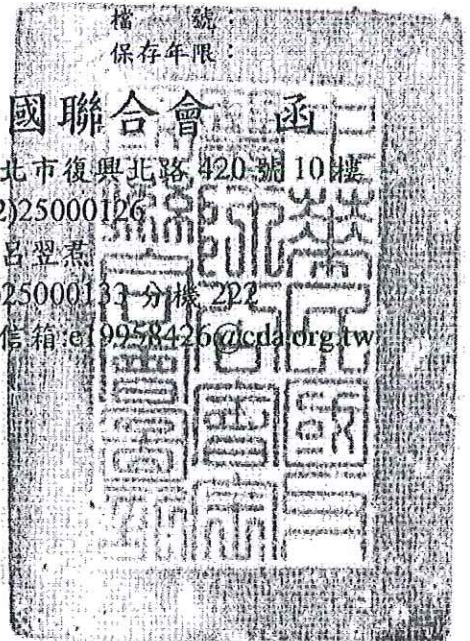 檔 號：
保存年限：
國聯合會 函
北市復興北路 420 號 10 樓
2)25000126
呂翌君
25000133 分機 222
信箱:e19958426@cda.org.tw